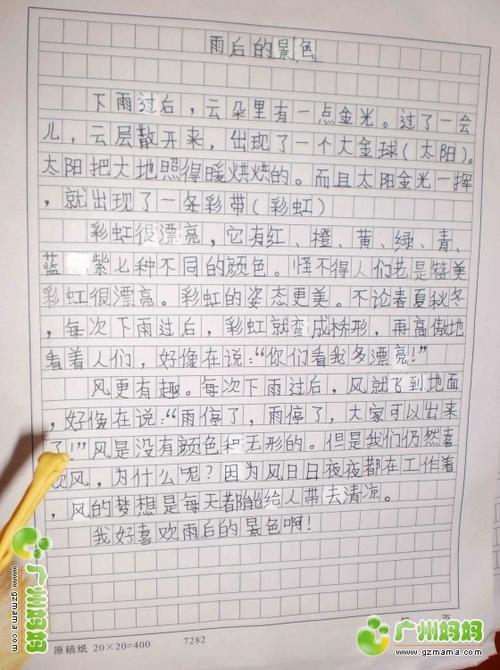 雨后的景色
下雨过后，云朵里有一点金光。过了一会
儿，云层散开来，出现了一个大金球(太阳)。
太阳把大地照得暖烘烘的。而且太阳金光一挥
，就出现了一条彩带(彩虹)
彩虹很漂亮，它有红、橙、黄、绿、青、
蓝 紫七种不同的颜色。怪不得人们老是赞美
彩虹很漂亮。彩虹的姿态更美。不论春夏秋冬
，每次下雨过后，彩虹就变成桥形，再高傲地
看着人们，好像在说:“你们看我多漂亮!”
风更有趣。每次下雨过后，风就飞到地面
，好像在说:“雨停了，雨停了，大家可以出来
了!”风是没有颜色和无形的。但是我们仍然喜
欢风，为什么呢?因为风日日夜夜都在工作着
，风的梦想是每天都能给人带去清凉。
我好喜欢雨后的景色啊!
原稿纸 20×20=400 7282 页
广州妈妈
www.gzmama.com
广州妈妈
www.gzmama.com